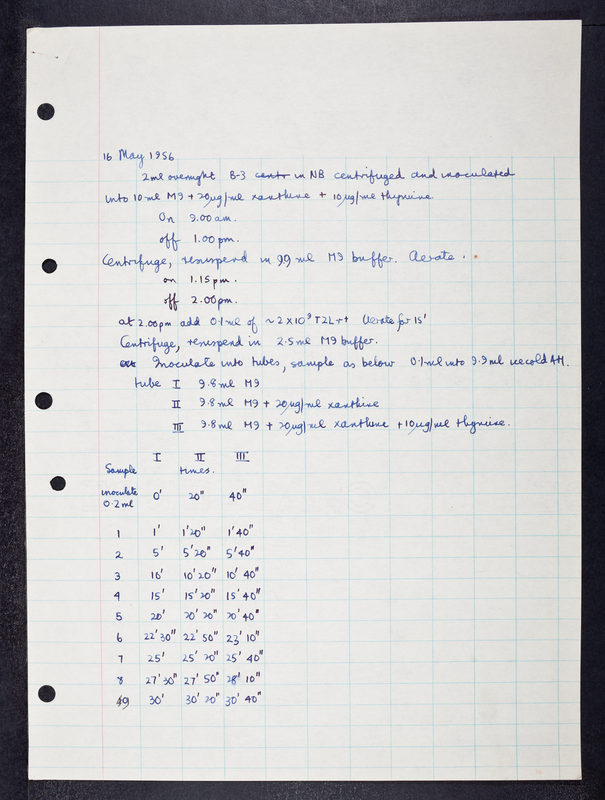 16 May 1956
2ml overnight B-3 cent in NB centrifuged and inoculated
into 10ml M9 + 20µg/ml xanthine + 10µg/ml thymine.
On 9.00 am.
off 1.00 pm.
Centrifuge, resuspend in 99 ml M9 buffer. Aerate.
on 1.15 pm.
off 2.00 pm.
at 2.00pm add 0.1ml of ~2×10⁹ T2Lr+ Aerate for 15'
Centrifuge, resuspend in 2.5ml M9 buffer.
Inoculate into tubes, sample as below 0.1ml into 9.9ml icecold
tube I 9.8ml M9
II 9.8ml M9 + 20µg/ml xanthine
III 9.8ml M9 + 20µg/ml xanthine + 10µg/ml thymine.
I II III
Sample times.
inoculate 0' 20" 40"
0.2ml
1 1' 1'20" 1'40"
2 5' 5'20" 5'40"
3 10' 10'20" 10'40"
4 15' 15'20" 15'40"
5 20' 20'20" 20'40"
6 22'30" 22'50" 23'10"
7 25' 25'20" 25'40"
8 27'30" 27'50" 28'10"
9 30' 30'20" 30'40"